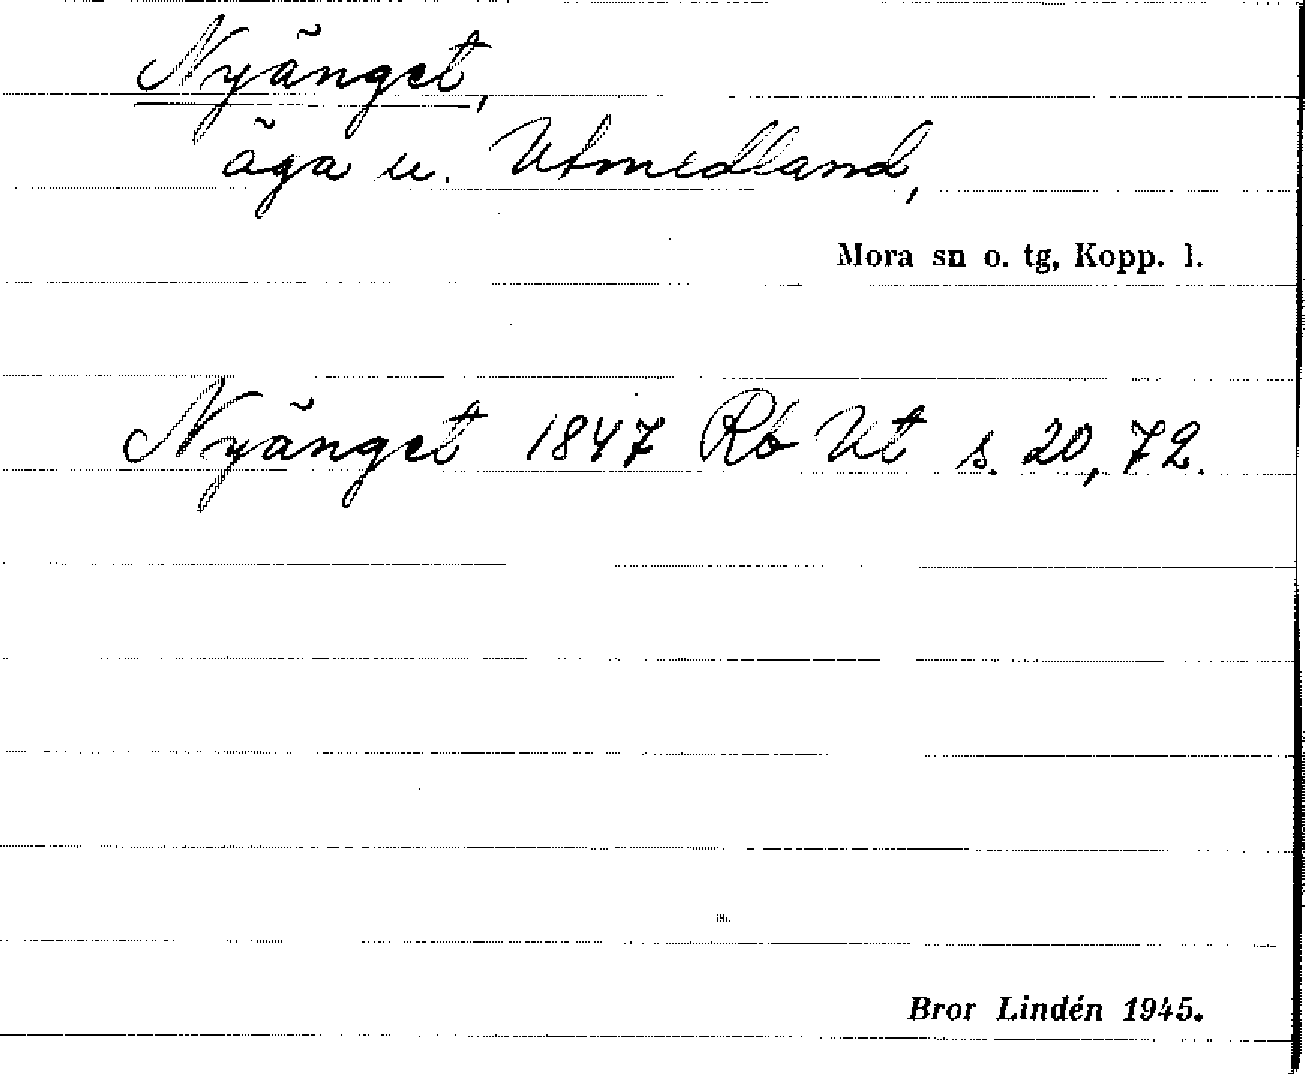 Nyänget,
äga u. Utmedland,
Mora sn o. tg, Kopp. l.
Nyänget 1847 Rb Ut s. 20, 72.
Bror Lindén 1945.